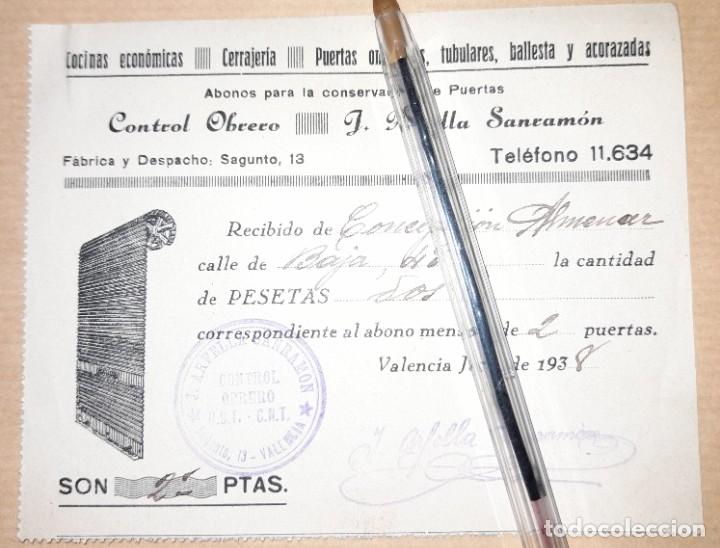 Cocinas económicas Cerrajería Puertas tubulares, ballesta y acorazadas
Abonos para la de Puertas
Control Obrero J. Sanramón
Fábrica y Despacho: Sagunto, 13 Teléfono 11.634
Recibido de Concepción Almenar
calle de Baja, la cantidad
de PESETAS Dos
correspondiente al abono de 2 puertas.
Valencia de 1938
J. SANRAMON
CONTROL
OBRERO
U.G.T. - C.N.T.
13 - VALENCIA
J. Sanramón
SON 2 PTAS.
todocoleccion